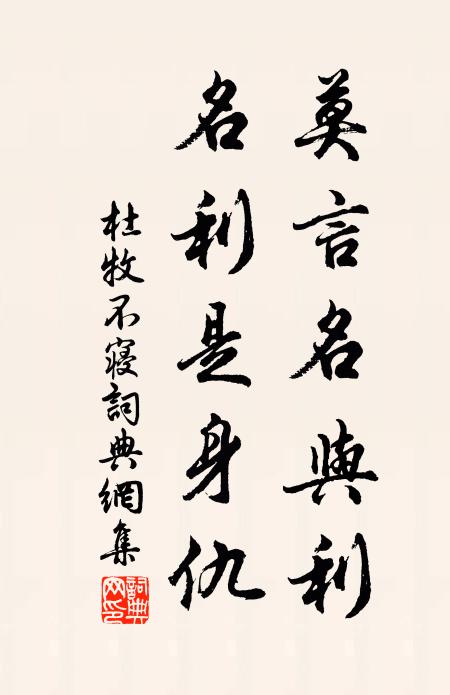 莫言名與利
名利是身仇
杜牧不寢詞典網集
詞典网印